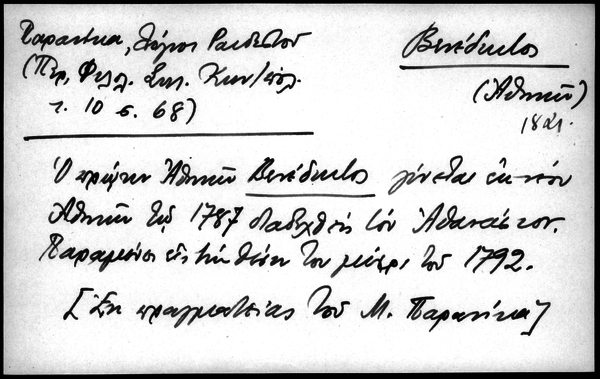 Παρανίκα, Λόγιοι Ραιδεστού
(Περ. Φιλολ. Συλ. Κων/πόλ.
τ. 10 σ. 68)
Βενέδικτος
(Ἀθηνῶν)
1821.
Ὁ πρώην Ἀθηνῶν Βενέδικτος γίνεται ἐκ νέου
Ἀθηνῶν τῷ 1787 διαδεχθεὶς τὸν Ἀθανάσιον.
Παραμένει εἰς τὴν θέσιν του μέχρι τοῦ 1792.
[Ἐκ πραγματείας τοῦ Μ. Παρανίκα]